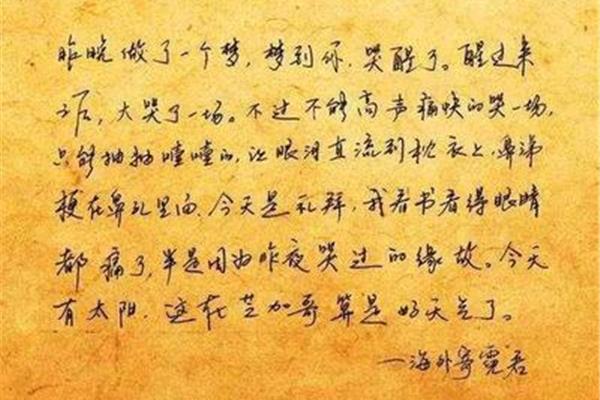 昨晚做了一个梦，梦到你，哭醒了。醒过来
之后，大哭了一场。不过不能高声痛快的哭一场，
只能抽抽噎噎的，让眼泪直流到枕衣上，鼻涕
梗在鼻孔里面、今天是礼拜，我看书看得眼睛
都痛了，半是因为昨夜哭过的缘故。今天
有太阳．这在芝加哥算是好天气了。
—海外寄霓君